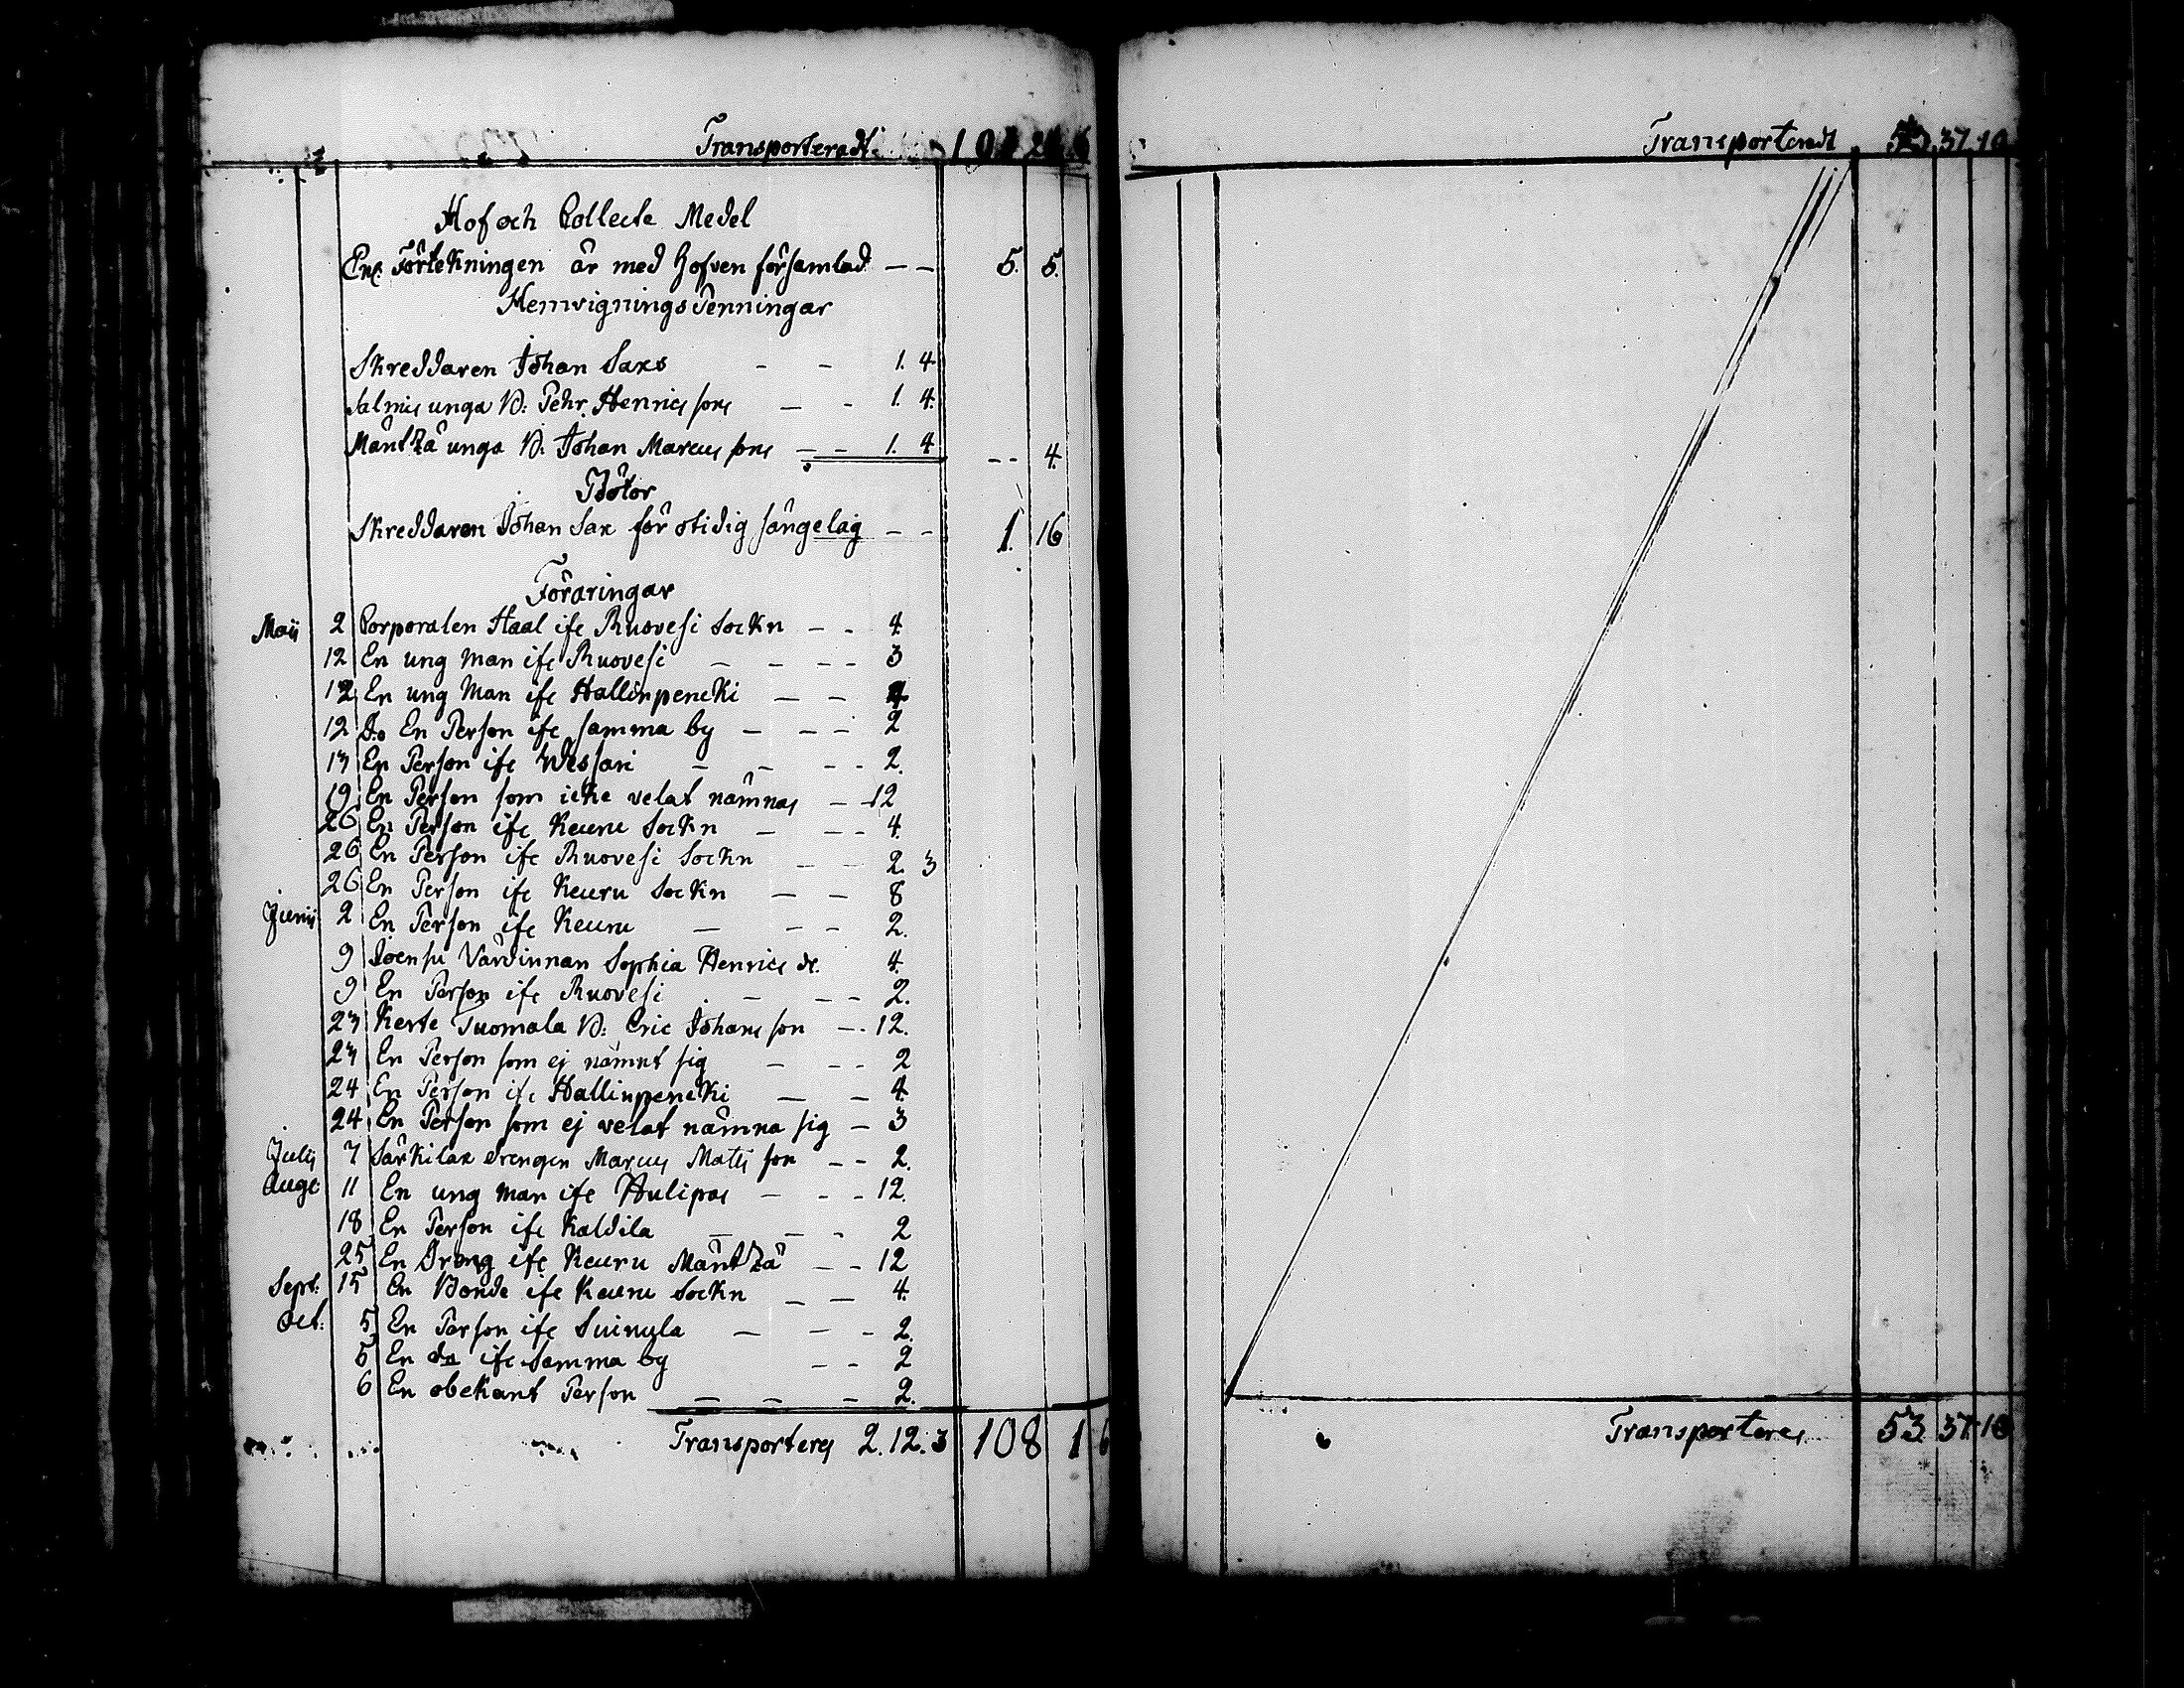 Transporteradt 101 24 6
Hof och Collecte Medel
Enl. Förtekningen är med hofven församlad – – 5. 5.
Hemvignings Penningar
Skreddaren Johan Saxs – – 1. 4
Salmis unga B: Pehr Henrics sons – – 1. 4.
Mäntzä unga B: Johan Marcus sons – – 1. 4
– – 4.
Böter
Skreddaren Johan Sax för otidig sängelag – – 1. 16
Föräringar
Maii 2 Corporalen Haal ifr Ruovesi Sockn – – 4
12 En ung man ifr Ruovesi – – – – 3
12 En ung Man ifr Hallinpencki – – 4
12 Do En Person ifr samma by – – – 2
13 En Person ifr Wessari – – – – 2.
19 En Person som icke velat nämnas – 12
26 En Person ifr Keuru Sockn – – – 4.
26 En Person ifr Ruovesi Sockn – – 2. 3
26 En Person ifr Keuru Sockn – – 8
Junii 2 En Person ifr Keuru – – – 2.
9 Joensu Värdinnan Sophia Henrics dr. 4.
9 En Person ifr Ruovesi – – – 2.
23 Kerte Tuomala B: Eric Johans son – 12.
23 En Person som ej nämnt sig – – – 2
24 En Person ifr Hallinpencki – – 4.
24 En Person som ej velat nämna sig – 3
Julii 7 Särkilax drengen Marcus Mats son – – 2.
Aug: 11 En ung man ifr Hulipas – – – 12.
18 En Person ifr Kaldila – – – 2
25 En Dreng ifr Keuru Mäntzä – – 12
Sept: 15 En Bonde ifr Keuru Sockn – – 4.
Oct: 5 En Person ifr Suinula – – – 2.
5 En do ifr Samma by – – 2
6 En obekant Person – – – 2.
Transporteres 2. 12. 3 108 1 6
Transporteradt 53. 37. 10
Transporteres 53. 37. 10